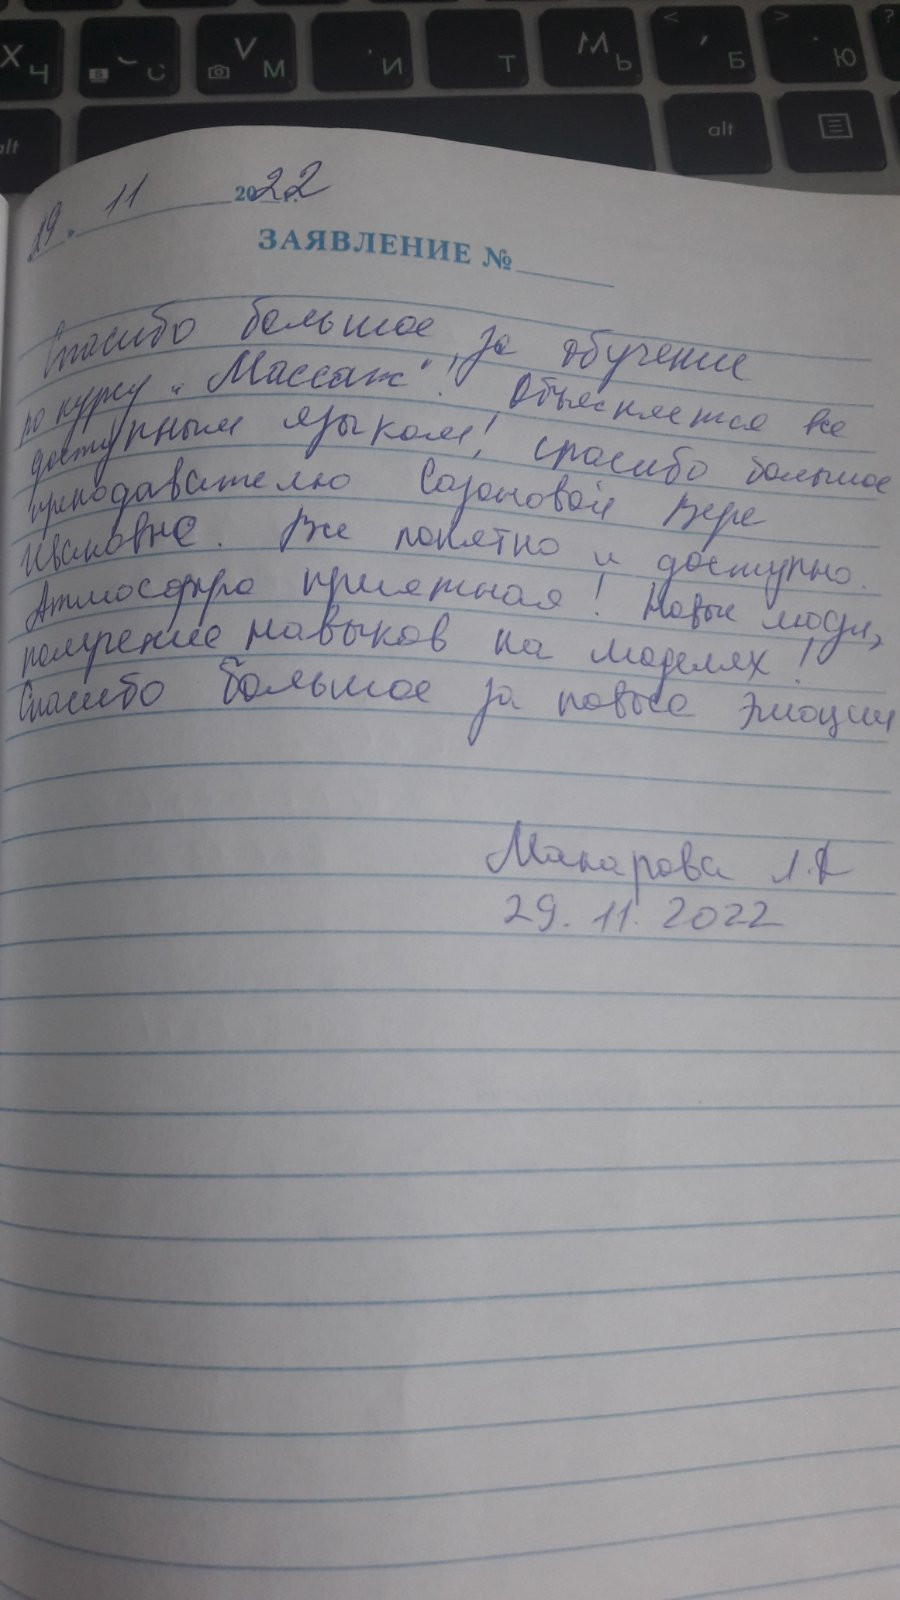 Х Ч С V М И Т М Ь < Б > Ю ?
alt alt
29. 11 2022
ЗАЯВЛЕНИЕ №
Спасибо большое за обучение
по курсу "Массаж"! Объясняется все
доступным языком! спасибо большое
преподавателю Сазоновой Вере
Ивановне. Все понятно и доступно.
Атмосфера приятная! Новые люди,
получение навыков на моделях!
Спасибо большое за новые эмоции
Макарова Л.А
29.11.2022